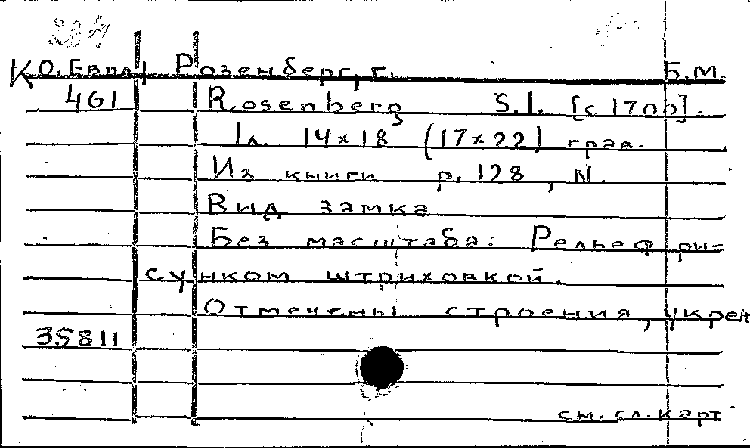 К О. Евпл Розенберг, г. Б.М.
461 Rosenberg S.l. [с 1700].
1 л. 14×18 (17×22) грав.
Из книги p. 128, N.
Вид замка
Без масштаба: Рельеф ри-
сунком штриховкой.
Отмечены строения, укреп
35811
см. сл. карт